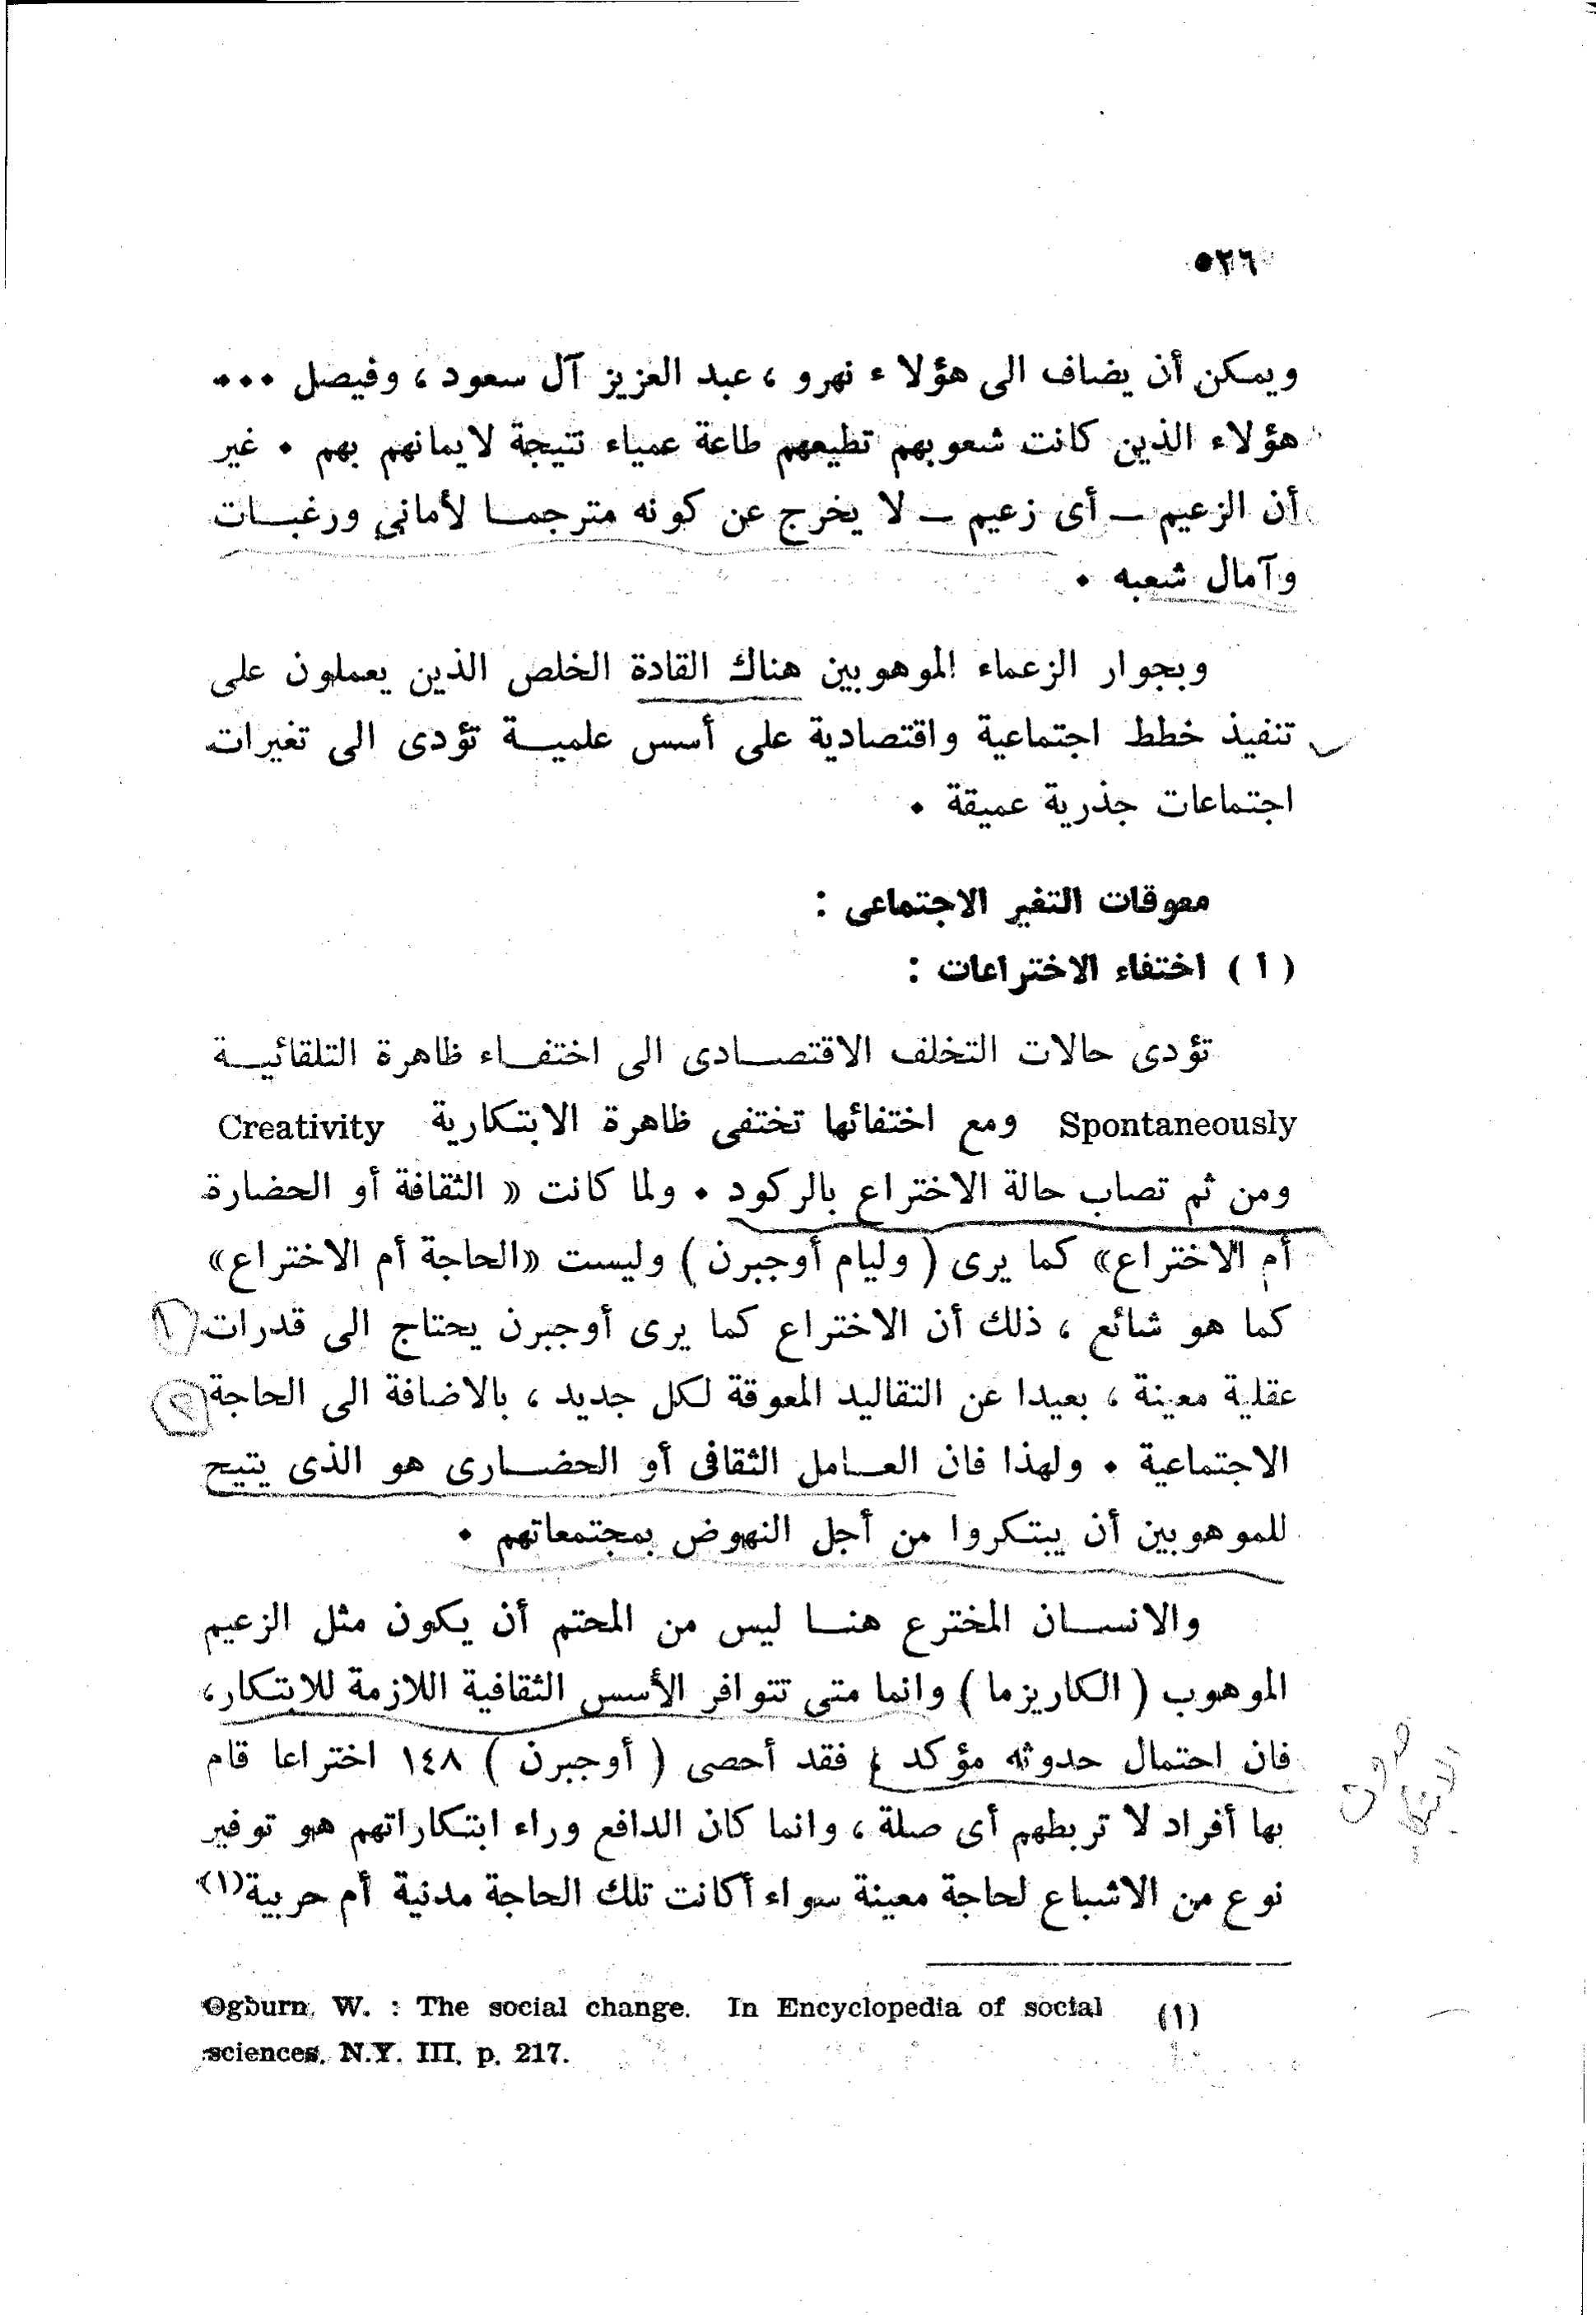 ٥٢٦
ويمكن أن يضاف الى هؤلاء نهرو ، عبد العزيز آل سعود ، وفيصل ٠٠٠
هؤلاء الذين كانت شعوبهم تطيعهم طاعة عمياء نتيجة لايمانهم بهم ٠ غير
أن الزعيم ــ أى زعيم ــ لا يخرج عن كونه مترجمـا لأماني ورغبـات
وآمال شعبه ٠
وبجوار الزعماء الموهوبين هناك القادة الخلص الذين يعملون على
تنفيذ خطط اجتماعية واقتصادية على أسس علميـة تؤدى الى تغيرات
اجتماعات جذرية عميقة ٠
معوقات التغير الاجتماعى :
( أ ) اختفاء الاختراعات :
تؤدى حالات التخلف الاقتصـادى الى اختفـاء ظاهرة التلقائيـة
Spontaneously ومع اختفائها تختفى ظاهرة الابتكارية Creativity
ومن ثم تصاب حالة الاختراع بالركود ٠ ولما كانت « الثقافة أو الحضارة
أم الاختراع» كما يرى ( وليام أوجبرن ) وليست «الحاجة أم الاختراع»
كما هو شائع ، ذلك أن الاختراع كما يرى أوجبرن يحتاج الى قدرات
عقلية معينة ، بعيدا عن التقاليد المعوقة لكل جديد ، بالاضافة الى الحاجة
الاجتماعية ٠ ولهذا فان العـامل الثقافى أو الحضـارى هو الذى يتيح
للموهوبين أن يبتكروا من أجل النهوض بمجتمعاتهم ٠
والانسـان المخترع هنـا ليس من المحتم أن يكون مثل الزعيم
الموهوب ( الكاريزما ) وانما متى تتوافر الأسس الثقافية اللازمة للابتكار،
فان احتمال حدوثه مؤكد ؛ فقد أحصى ( أوجبرن ) ١٤٨ اختراعا قام
بها أفراد لا تربطهم أى صلة ، وانما كان الدافع وراء ابتكاراتهم هو توفير
نوع من الاشباع لحاجة معينة سواء أكانت تلك الحاجة مدنية أم حربية(١)
(١) Ogburn, W. : The social change. In Encyclopedia of social
sciences, N.Y. III, p. 217.